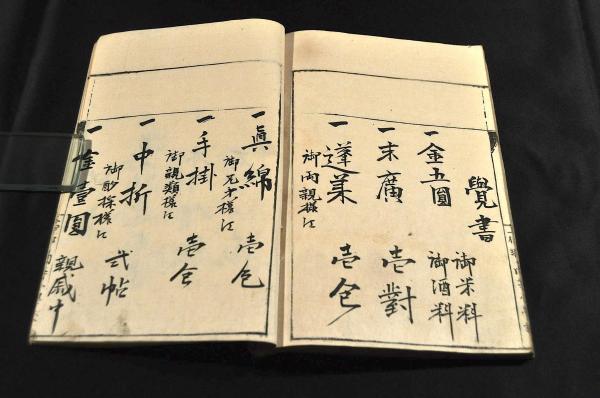 覺書
一金五圓 御米料
御酒料
一末廣 壱對
一蓬莱 壱
御両親様江
一眞綿 壱包
御兄弟様江
一手掛 壱
御親類様江
一中折 弐帖
一金壹圓 親戚中